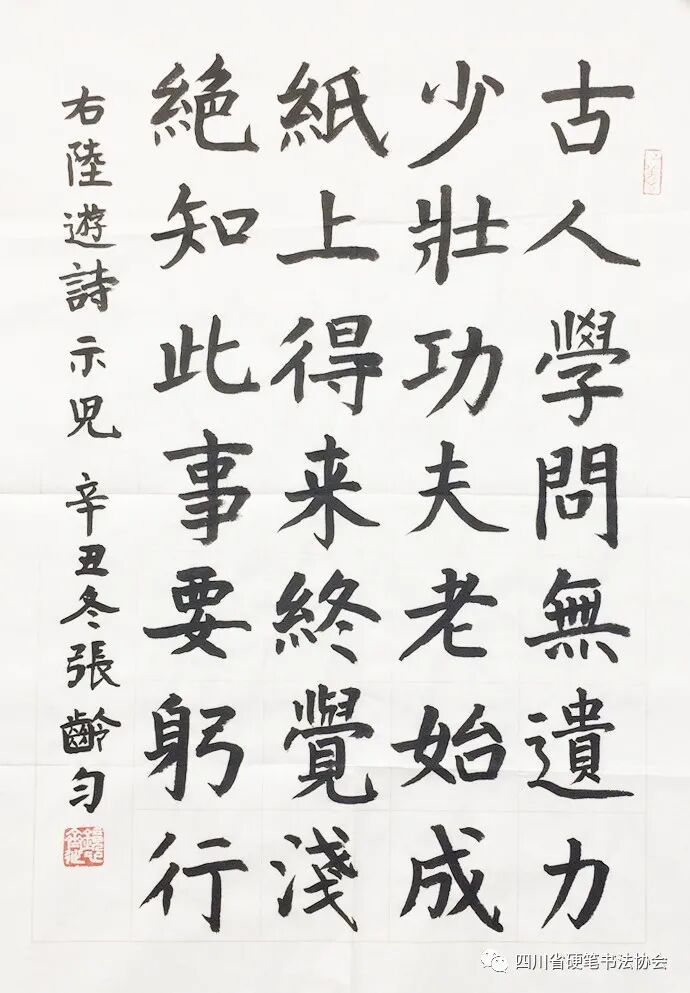 古人學問無遺力
少壯功夫老始成
紙上得来終覺淺
絕知此事要躬行
右陸遊詩示児 辛丑冬張齡匀
四川省硬笔书法协会